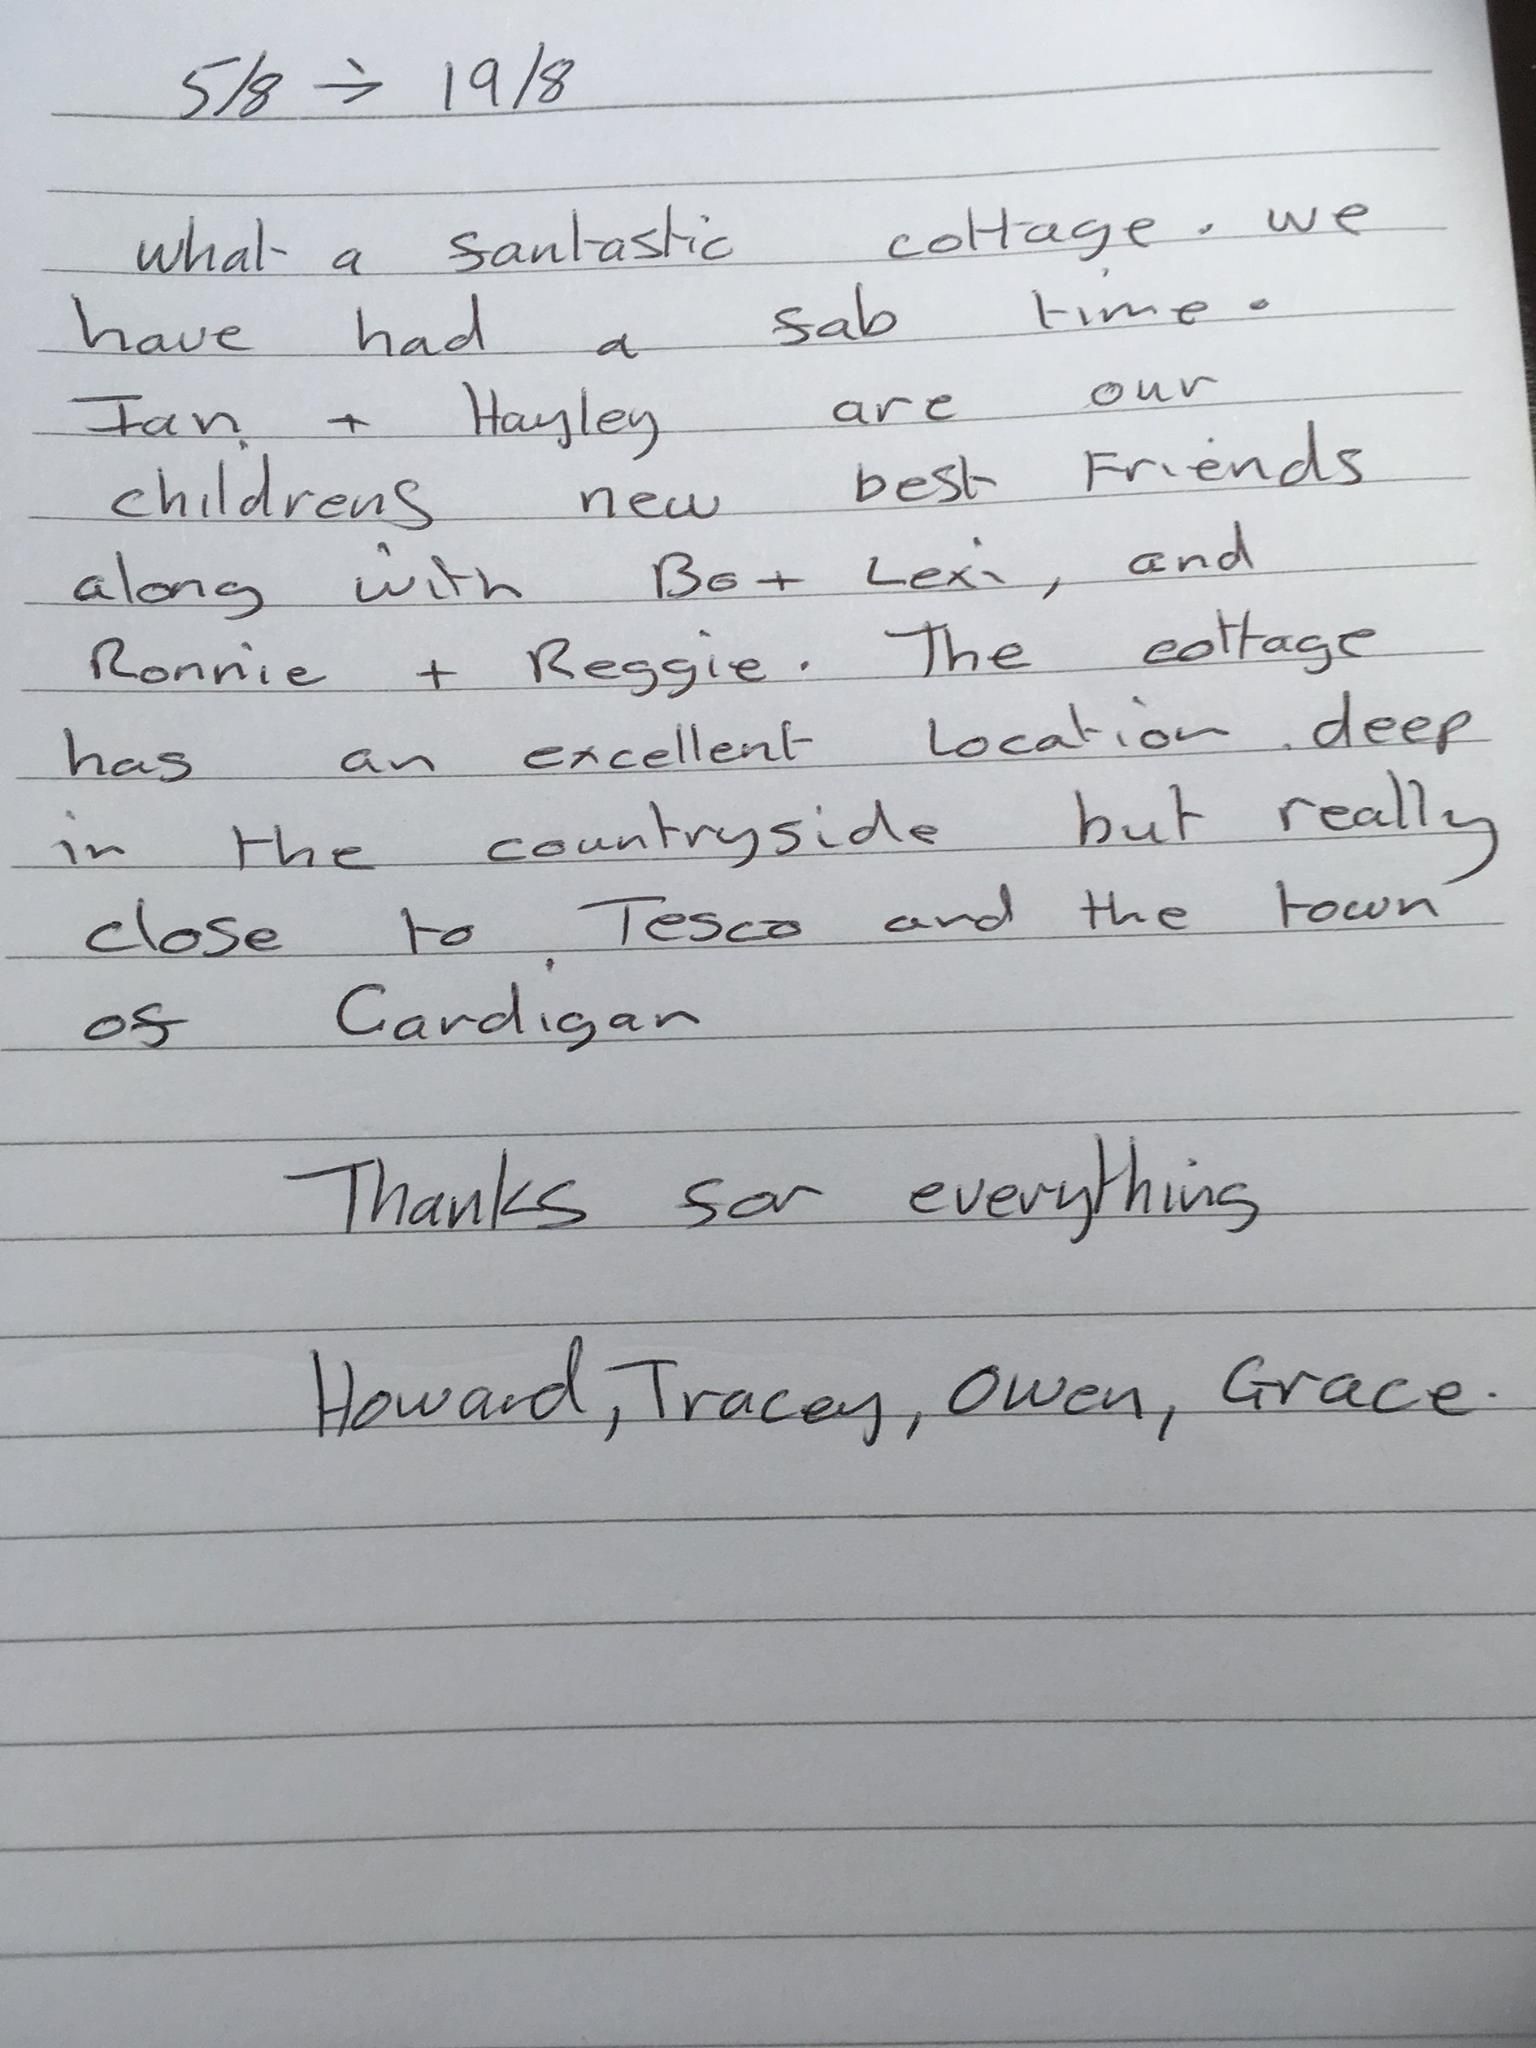 5/8 → 19/8
What a fantastic cottage. We
have had a fab time.
Ian + Hayley are our
childrens new best Friends
along with Bo + Lexi, and
Ronnie + Reggie. The cottage
has an excellent Location deep
in the countryside but really
close to Tesco and the town
of Cardigan
Thanks for everything
Howard, Tracey, Owen, Grace.